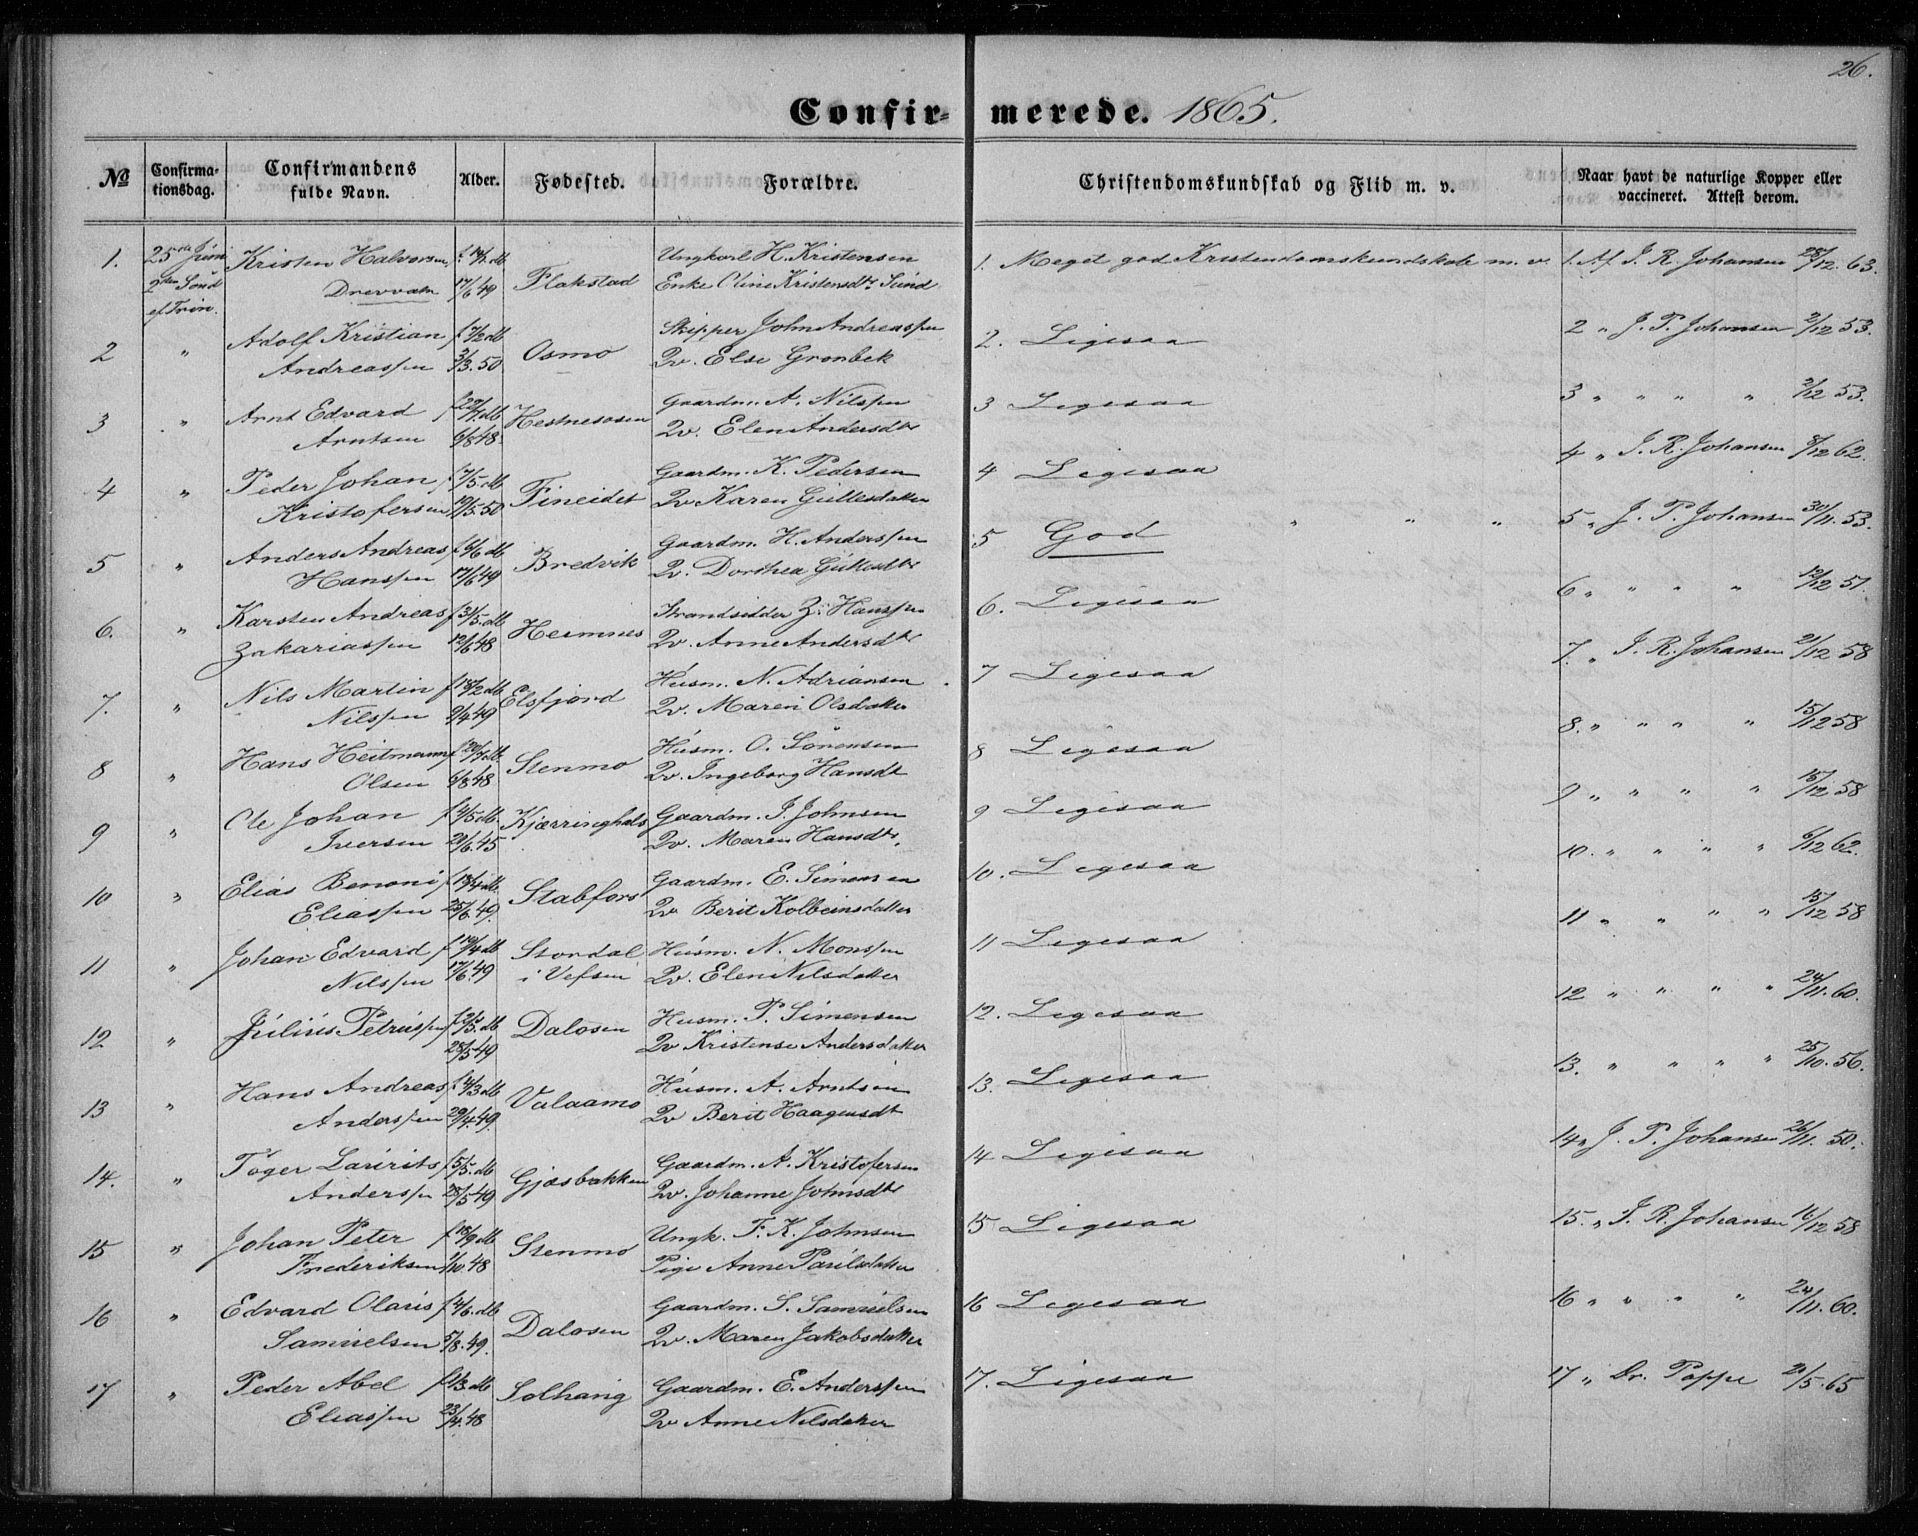 26.
Confir- merede. 1865.
No
Confirma-
tionsdag.
Confirmandens
fulde Navn.
Alder.
Fødested.
Forældre.
Christendomskundskab og Flid m. v.
Naar havt de naturlige Kopper eller
vaccineret. Attest derom.
1. 25de Juni Kristen Halvorsen, Ungkarl H. Kristensen 1. Meget god Kristendomskundskab m. v. 1. Af J. R. Johansen 28/12. 63.
2den Sønd Drevvatn 17/6 49 Flakstad Enke Oline Kristensdtr Sund
ef Trin.
2 " Adolf Kristian f 7/2 db Osmo Skipper John Andreassen 2. Ligesaa 2 " J. P. Johansen 2/12 53.
Andreassen 3/3. 50 Qv. Else Grønbek
3 " Arnt Edvard f 22/7. db Hestnesosen Gaardm. A. Nilssen 3 Ligesaa 3 " " " " 2/12 53.
Arntsen 6/8 48. Qv. Elen Andersdtr
4 " Peder Johan f 7/5. db Fineidet Gaardm. K. Pedersen 4 Ligesaa 4 " J. R. Johansen 8/12 62.
Kristofersen 19/5. 50 Qv Karen Gullesdatter
5 " Anders Andreas f 6/6 db Bredvik Gaardm. H. Anderssen 5 God " " " 5 " J. P. Johansen 30/11. 53.
Hanssen 17/6 49 Qv. Dorthea Gullesdtr
6. " Karsten Andreas f 31/5. db Hemnes Strandsidder Z. Hanssen 6. Ligesaa 6 " " " " 12/12 51.
Zakariassen 12/6 48 Qv. Anne Andersdtr
7. " Nils Martin f 18/2 db Elsfjord Husm. N. Adriansen 7 Ligesaa 7. " J. R. Johansen 21/12 58
Nilssen 9/4 49 Qv. Maren Olsdatter
8 " Hans Heitmann f 20/7. db Stenmo Husm. O. Sørensen 8 Ligesaa 8. " " " " 15/12 58
Olsen 6/8 48 Qv. Ingeborg Hansdt
9 " Ole Johan f 4/5. db. Kjærringhals Gaardm. J. Johnsen 9 Ligesaa 9 " " " " 15/12 58
Iversen 20/6. 45 Qv. Maren Hansdtr,
10 " Elias Benoni f 18/4 db. Stabfors Gaardm. E. Simensen 10. Ligesaa 10. " " " " 6/12 62.
Eliassen 25/6. 49. Qv Berit Kolbeinsdatter
11 " Johan Edvard f 19/4 db Stordal Husm. N. Monssen 11 Ligesaa 11 " " " " 15/12 58
Nilssen 17/6. 49 i Vefsen Qv. Elen Nilsdatter
12 " Julius Petrussen f 2/5. db Dalosen Husm. P. Simensen 12. Ligesaa 12 " " " " 24/11. 60.
28/5 49 Qv Kristense Andersdatter
13 " Hans Andreas f 4/3 db Valaamo Husm. A. Arntsen 13. Ligesaa 13. " " " " 25/10. 56.
Anderssen 29/4. 49. Qv Berit Haagensdt
14. " Tøger Laurits f 5/5. db Gjæsbakken Gaardm. A. Kristofersen 14 Ligesaa 14 " J. P. Johansen 26/11. 50.
Anderssen 28/5 49 Qv. Johanne Johnsdtr
15 " Johan Peter f 18/9 db Stenmo Ungk. F. K. Johnsen 15 Ligesaa 15. " J. R. Johansen 16/12 58
Frederiksen 1/10. 48 Pige Anne Paulsdatter
16 " Edvard Olaus f 4/6. db Dalosen Gaardm. S. Samuelsen 16 Ligesaa 16 " " " " 24/11. 60.
Samuelsen 5/8. 49. Qv. Maren Jakobsdatter
17 " Peder Abel f 1/3. db Solhaug Gaardm. E. Anderssen 17. Ligesaa 17 " Dr. Poppe 2/5. 65
Eliassen 23/4. 48 Qv Anne Nilsdatter